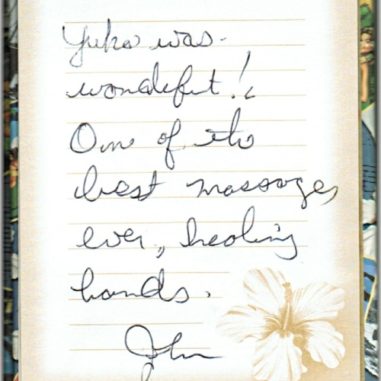 Yuko was
wonderful!!
One of the
best massages
ever, healing
hands.
John